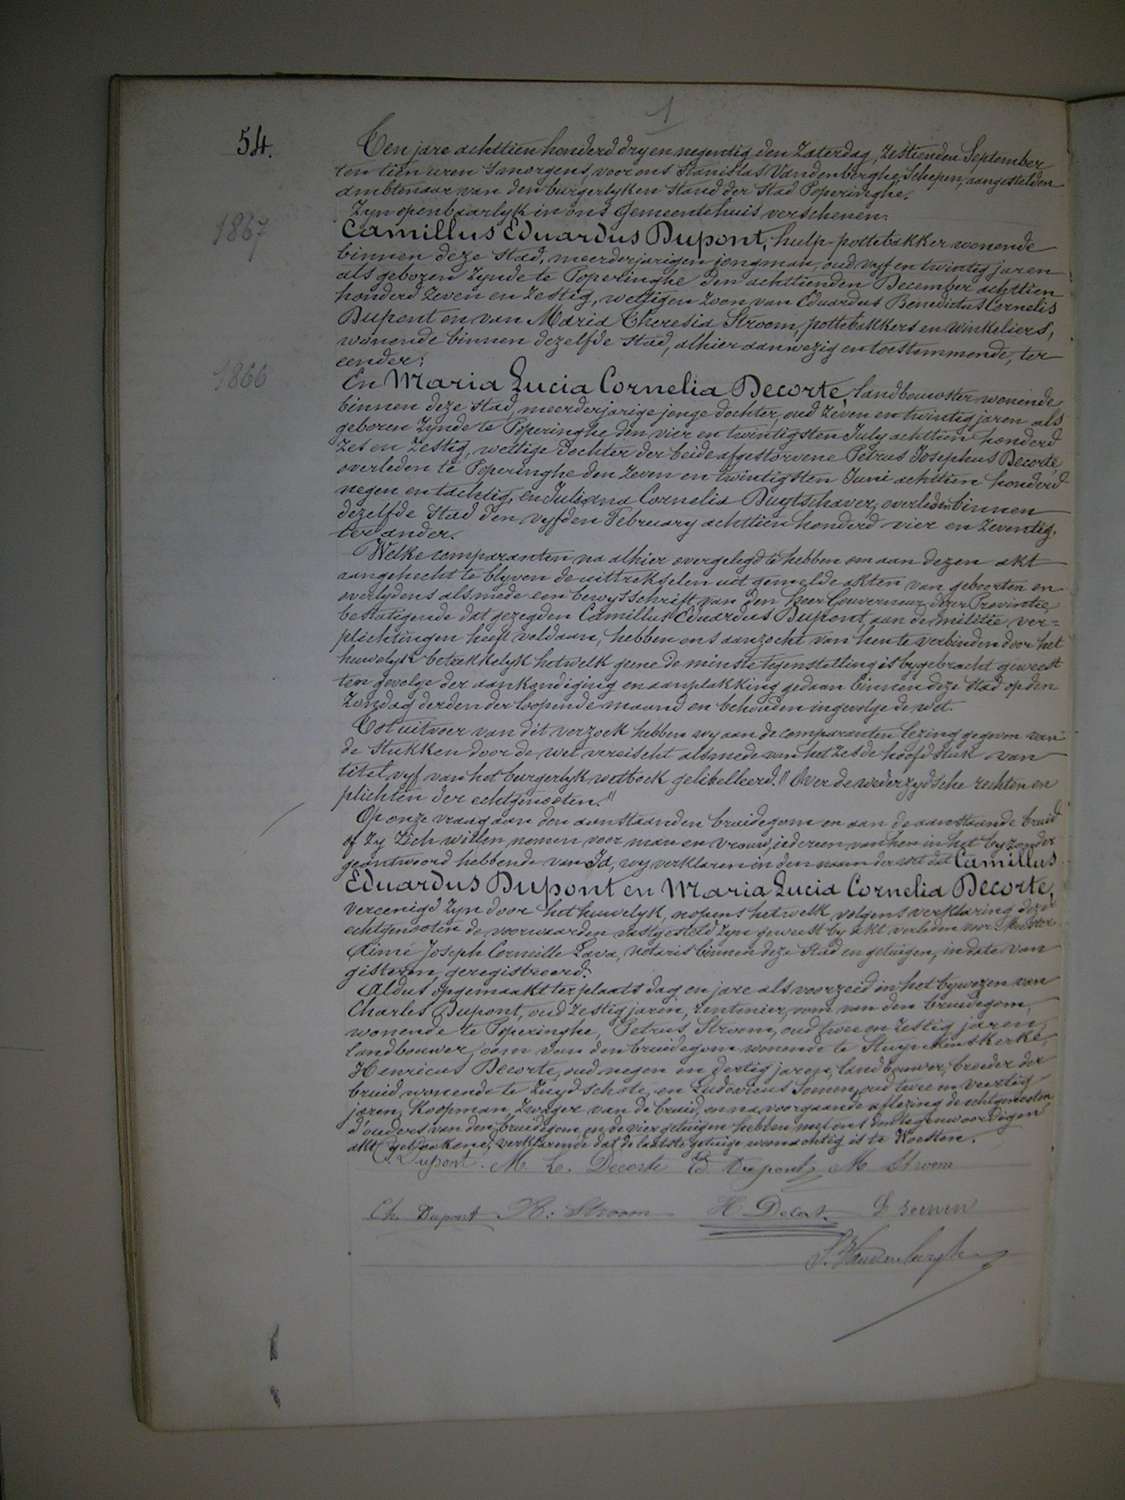 1
54.
Ten jare achttien honderd dryen negentig den Zaterdag, Zestienden September
ten tien uren 's morgens, voor ons Stanislas Vandenberghe, Schepen, aangestelden
ambtenaar van den burgerlyken Stand der Stad Poperinghe.
Zyn openbaarlyk in ons Gemeentehuis verschenen:
1867
Camillus Eduardus Dupont, hulp-pottebakker wonende
binnen deze Stad, meerderjarigen jongman, oud vyf en twintig jaren
als geboren Zynde te Poperinghe den achttienden December achttien
honderd Zeven en Zestig, wettigen Zoon van Eduardus Benedictus Cornelis
Dupont en van Maria Theresia Stroom, pottebakkers en winkeliers,
wonende binnen dezelfde Stad, alhier aanwezig en toestemmende, ter
eender;
1866
En Maria Lucia Cornelia Decorte, landbouwster wonende
binnen deze Stad, meerderjarige jonge dochter, oud Zeven en twintig jaren als
geboren Zynde te Poperinghe den vier en twintigsten July achttien honderd
Zes en Zestig, wettige dochter der beide afgestorvene Petrus Josephus Decorte,
overleden te Poperinghe den Zeven en twintigsten Juni achttien honderd
negen en tachtig, en Juliana Cornelia Duytschaver, overleden binnen
dezelfde Stad den vyfden February achttien honderd vier en Zeventig,
ter ander.
Welke comparanten na alhier overgelegd te hebben om aan dezen akt
aangehecht te blyven de uittrekselen uit gemelde akten van geboorten en
overlydens alsmede een bewysschrift van den heer Gouverneur dezer Provintie
bestatigende dat gezegden Camillus Eduardus Dupont aan de militie ver=
plichtingen heeft voldaan, hebben ons aanzocht van hen te verbinden door het
huwelyk betrekkelyk hetwelk geene de minste tegenstelling is bygebracht geweest
ten gevolge der aankondiging en aanplakking gedaan binnen deze Stad op den
Zondag derden der loopende maand en behouden ingevolge de wet.
Tot uitvoer van dit verzoek hebben wy aan de comparanten lezing gegeven van
de Stukken door de wet vereischt alsmede van het Zesde hoofdstuk van
titel vyf van het burgerlyk wetboek gelibelleerd "Over de wederzydsche rechten en
plichten der echtgenooten."
Op onze vraag aan den aanstaanden bruidegom en aan de aanstaande bruid
of Zy Zich willen nemen voor man en vrouw, iedereen van hen in het byzonder
geantwoord hebbende van Ja, wy verklaren in den naam der wet dat Camillus
Eduardus Dupont en Maria Lucia Cornelia Decorte,
vereenigd Zyn door het huwelyk, nopens hetwelk volgens verklaring dezer
echtgenooten de voorwaarden vastgesteld Zyn geweest by akt verleden voor Meester
Aimé Joseph Corneille Lava, notaris binnen deze Stad en getuigen, in date van
gisteren, geregistreerd.
Aldus opgemaakt ter plaats dag en jare als voorzeid in het bywezen van
Charles Dupont, oud Zestig jaren, rentenier, oom van den bruidegom,
wonende te Poperinghe, Petrus Stroom, oud twee en Zestig jaren,
landbouwer, oom van den bruidegom wonende te Stuyvekenskerke,
Henricus Decorte, oud negen en dertig jaren, landbouwer, broeder der
bruid wonende te Zuydschote, en Ludovicus Soenen, oud twee en veertig
jaren, Koopman, Zwager van de bruid, en na voorgaande aflezing de echtgenooten
d'ouders van den bruidegom en de vier getuigen hebben met ons den tegenwoordigen
akt geteekend, verklarende dat de laatste getuige woonachtig is te Woesten.
C. Dupont. M L. Decorte Ed Dupont M Stroom
Ch. Dupont P. Stroom H. Decort. L Soenen
S. Vandenberghe